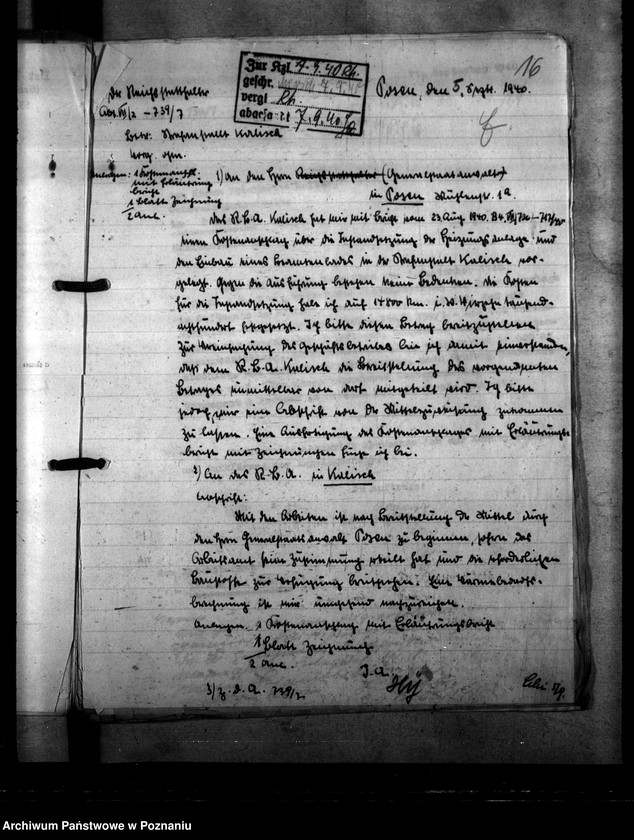 16
Zur Kzl. 7.9.40 Rh.
geschr. 7.9.40
vergl. Rh.
abgesandt 7.9.40
Der Reichsstatthalter
Posen, den 5. Sept. 1940.
Abt. VII/2 – 739/7
Betr. Strafanstalt Kalisch
Anlagen: 1 Kostenansch.
mit Erläuterungs-
bericht
1 Blatt Zeichnung
2 Anl.
1) An den Herrn Reichsstatthalter (Generalstaatsanwalt)
in Posen Mühlenstr. 1a.
Das R.B.A. Kalisch hat mir mit Bericht vom 23. Aug. 1940
einen Kostenanschlag über die Instandsetzung der Heizungsanlage und
den Einbau eines Beamtenbades in der Strafanstalt Kalisch vor-
gelegt. Gegen die Ausführung bestehen keine Bedenken. Die Kosten
für die Instandsetzung habe ich auf 14800 Rm. i. W. Vierzehntausend-
achthundert festgesetzt. Ich bitte diesen Betrag bereitzustellen.
Zur Vereinfachung des Geschäftsbetriebes bin ich damit einverstanden,
daß dem R.B.A. Kalisch die Bereitstellung des vorgenannten
Betrages unmittelbar von dort mitgeteilt wird. Ich bitte
jedoch, mir eine Abschrift von der Mittelzuweisung zukommen
zu lassen. Eine Ausfertigung des Kostenanschlages mit Erläuterungs-
bericht mit Zeichnungen füge ich bei.
2) An das R.B.A. in Kalisch
Abschrift:
Mit den Arbeiten ist nach Bereitstellung der Mittel durch
den Herrn Generalstaatsanwalt Posen zu beginnen, sofern das
Arbeitsamt seine Zustimmung erteilt hat und die erforderlichen
Baustoffe zur Verfügung bereitstehen. Eine Wärmebedarfs-
berechnung ist mir umgehend nachzureichen.
Anlagen: 1 Kostenanschlag mit Erläuterungsbericht
1 Blatt Zeichnung
2 Anl.
I. A.
3) Z. d. A. 739/2
Archiwum Państwowe w Poznaniu